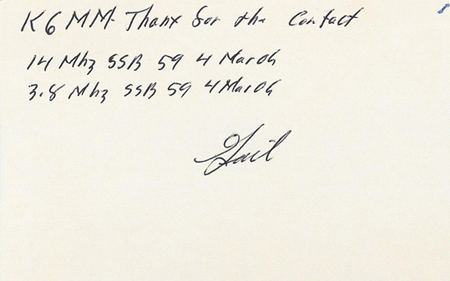 K6MM- Thanx for the Contact
14 Mhz SSB 59 4 Mar06
3.8 Mhz SSB 59 4 Mar06
Gail